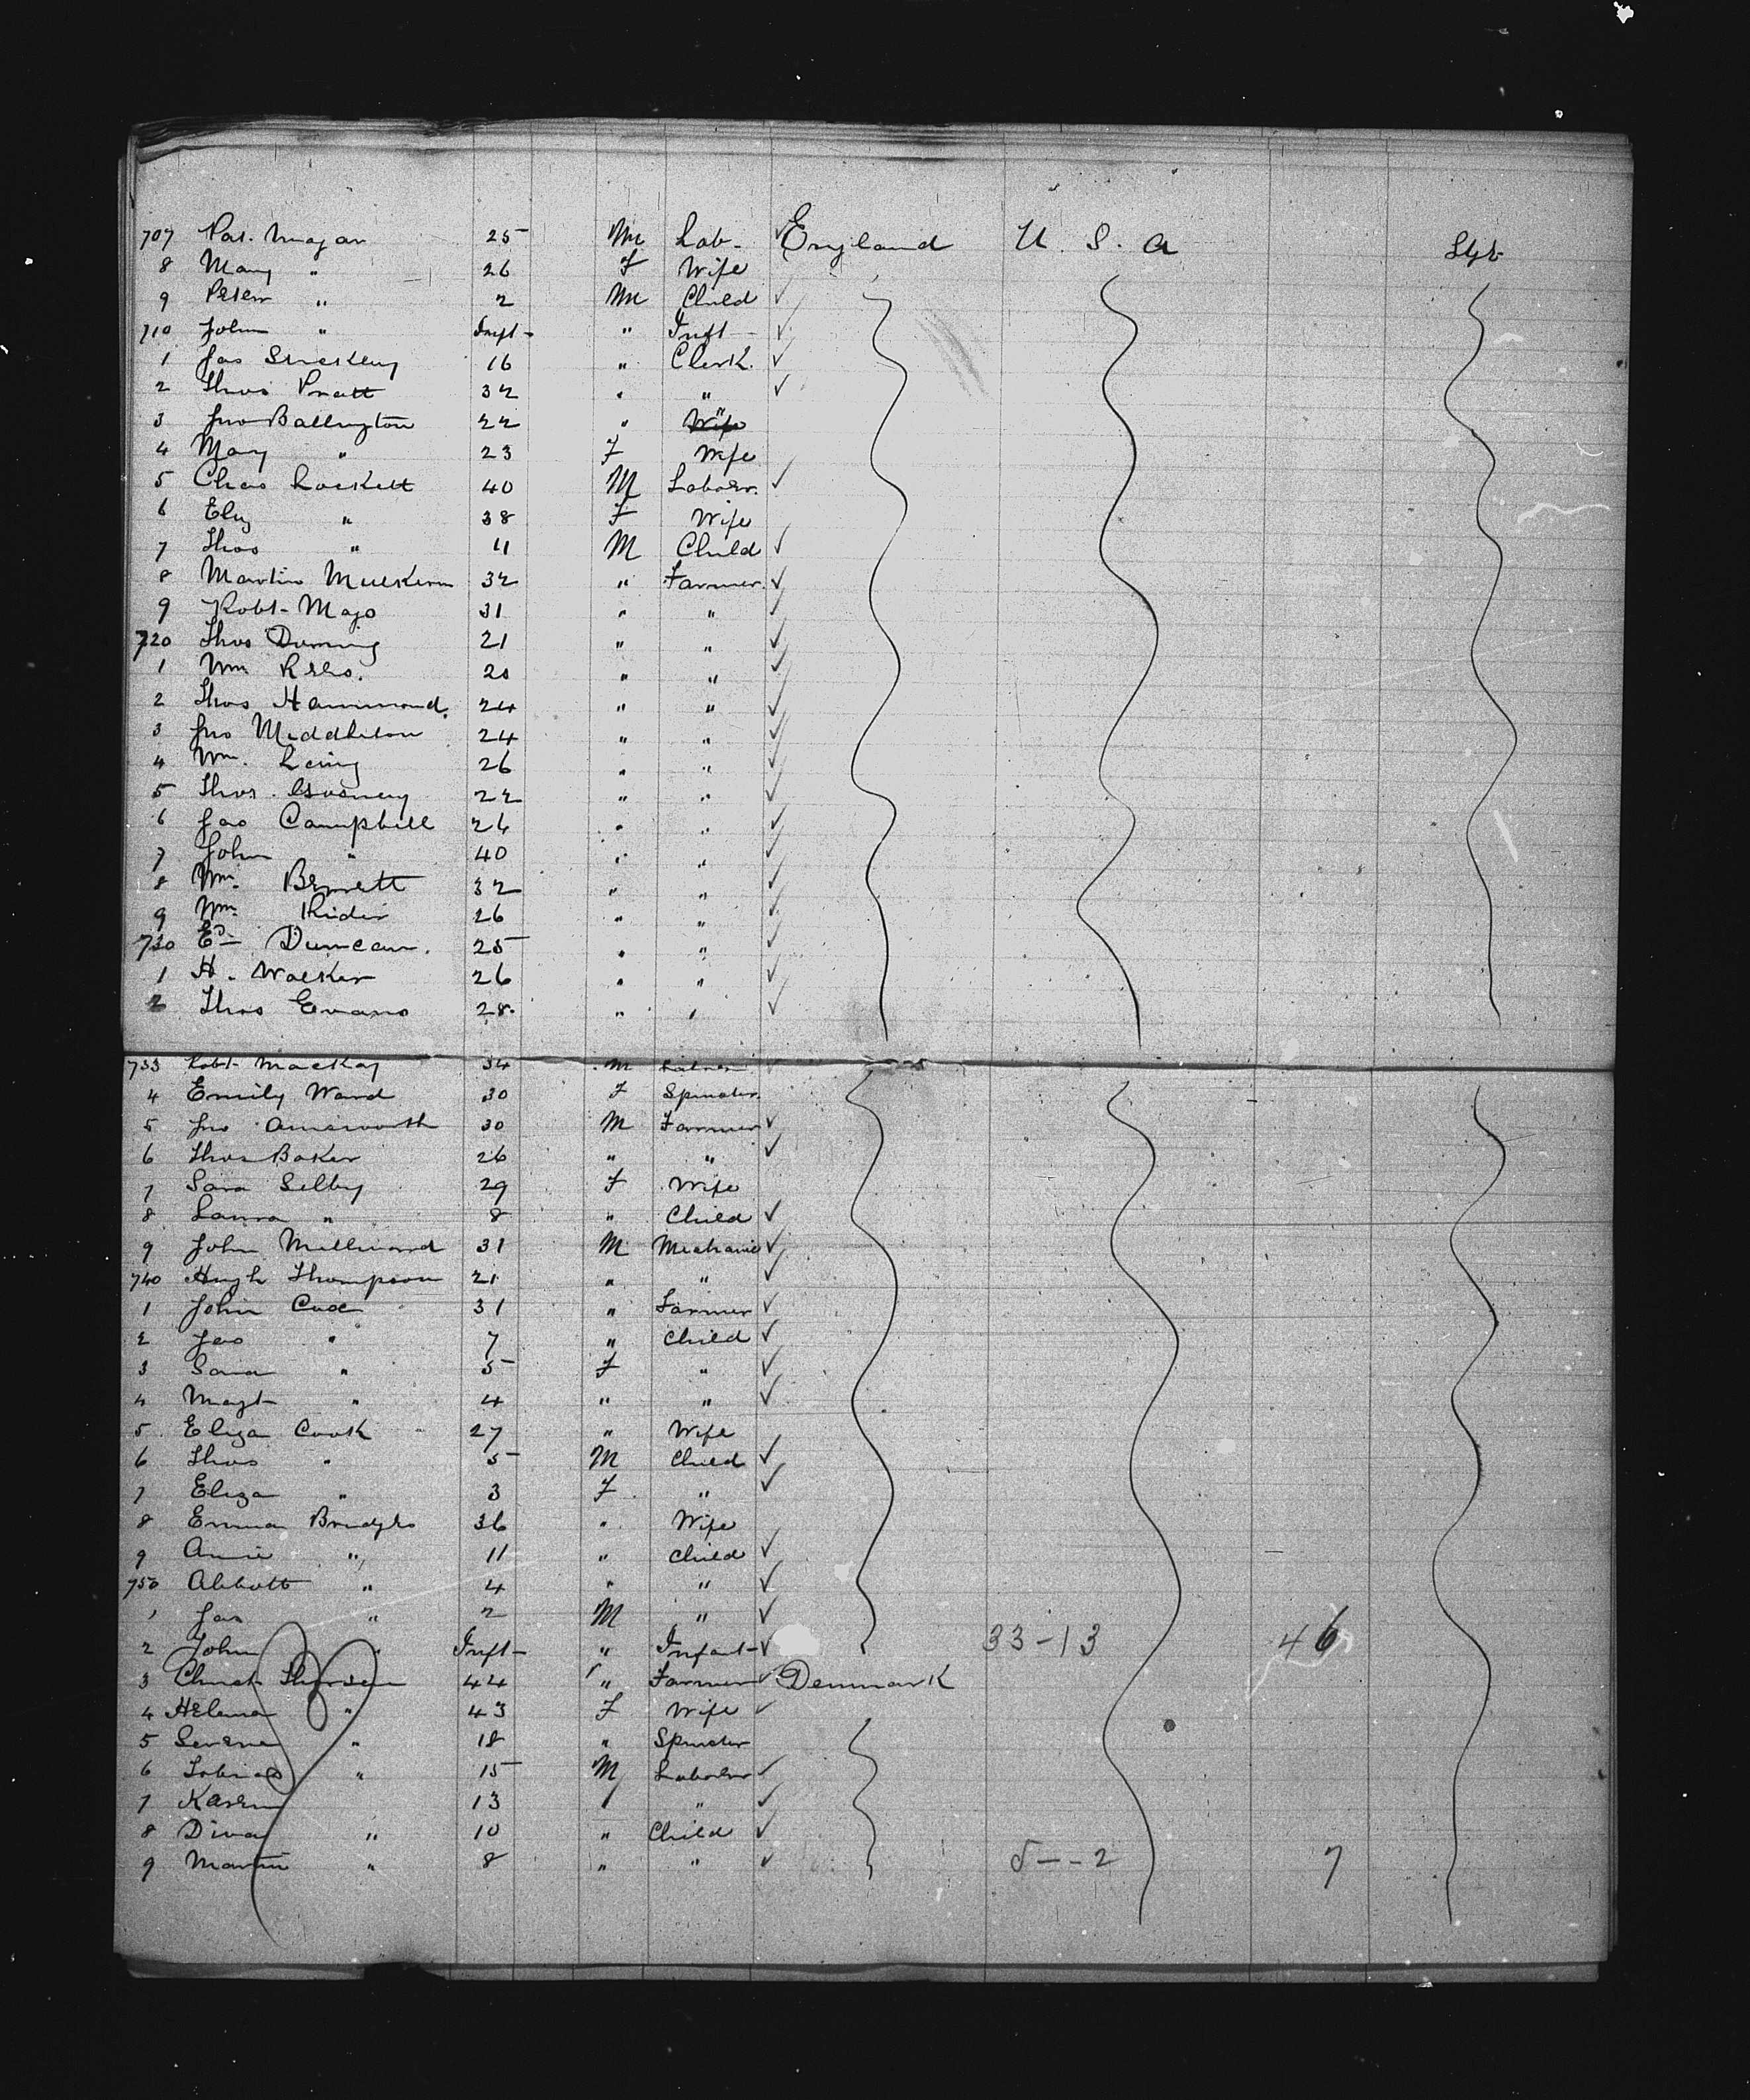 707 Pat. Magan 25 M Lab- England U. S. A Stge
8 Mary " 26 F Wife
9 Peter " 2 M Child
710 John " Inft- " Inft-
1 Jas Stuckley 16 " Clerk.
2 Thos Pratt 32 " "
3 Jno Ballington 22 " "
4 Mary " 23 F Wife
5 Chas Lockett 40 M Laborer.
6 Eliz " 38 F Wife
7 Thos " 11 M Child
8 Martin Mulkern 32 " Farmer.
9 Robt- Mayo 31 " "
720 Thos Duming 21 " "
1 Wm Rees. 20 " "
2 Thos Hammond. 24 " "
3 Jno Middleton 24 " "
4 Wm. Laing 26 " "
5 Thos. Gosney 22 " "
6 Jas Campbell 26 " "
7 John " 40 " "
8 Wm. Bennett 32 " "
9 Wm. Rider 26 " "
730 Ed- Duncan. 25 " "
1 H. Walker 26 " "
2 Thos Evans 28. " "
733 Robt- Mackay 34 M
4 Emily Ward 30 F Spinster.
5 Jno Ainsworth 30 M Farmer
6 Thos Baker 26 " "
7 Sara Selby 29 F Wife
8 Laura " 8 " Child
9 John Millward 31 M Mechanic
740 Hugh Thompson 21 " "
1 John Coxe 31 " Farmer
2 Jas " 7 " Child
3 Sara " 5 F "
4 Magt- " 4 " "
5 Eliza Cook 27 " Wife
6 Thos " 5 M Child
7 Eliza " 3 F "
8 Emma Bridges 36 " Wife
9 Annie " 11 " Child
750 Abbott " 4 " "
1 Jas " 2 M "
2 John " Inft- " Infant- 33-13 46
3 Christ- 44 " Farmer Denmark
4 Helena " 43 F Wife
5 Severne " 18 " Spinster
6 Tobias " 15 M Laborer
7 Karen 13 "
8 Diva " 10 " Child
9 Martin " 8 " " 5--2 7